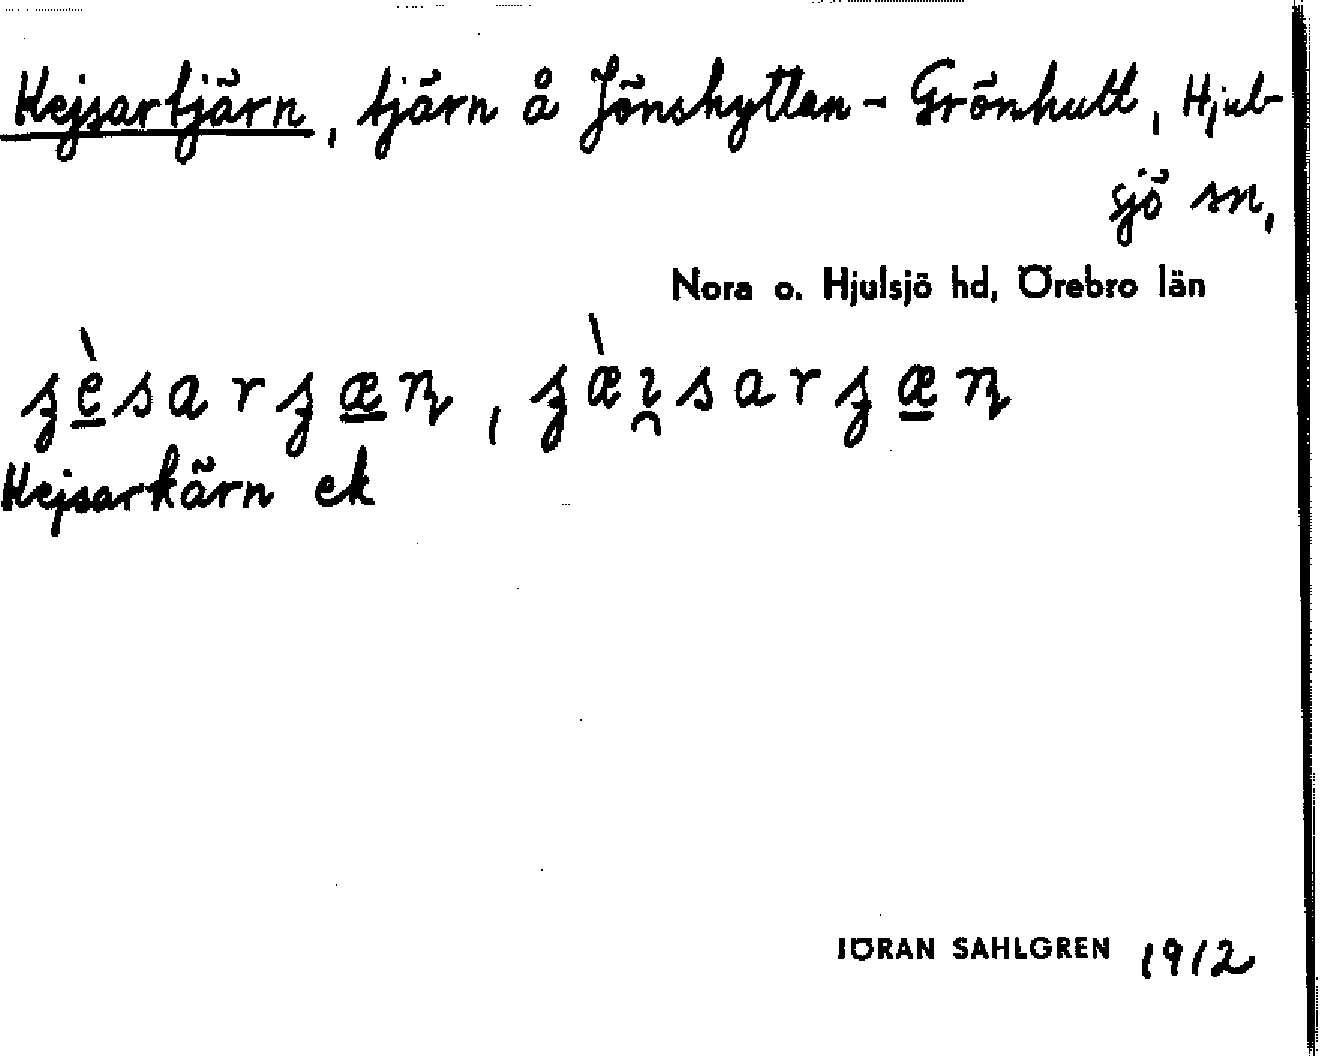 Kejsartjärn, tjärn å Jönshyttan - Grönhult, Hjul-
sjö sn,
Nora o. Hjulsjö hd, Örebro län
Kejsarkärn ek
JÖRAN SAHLGREN 1912